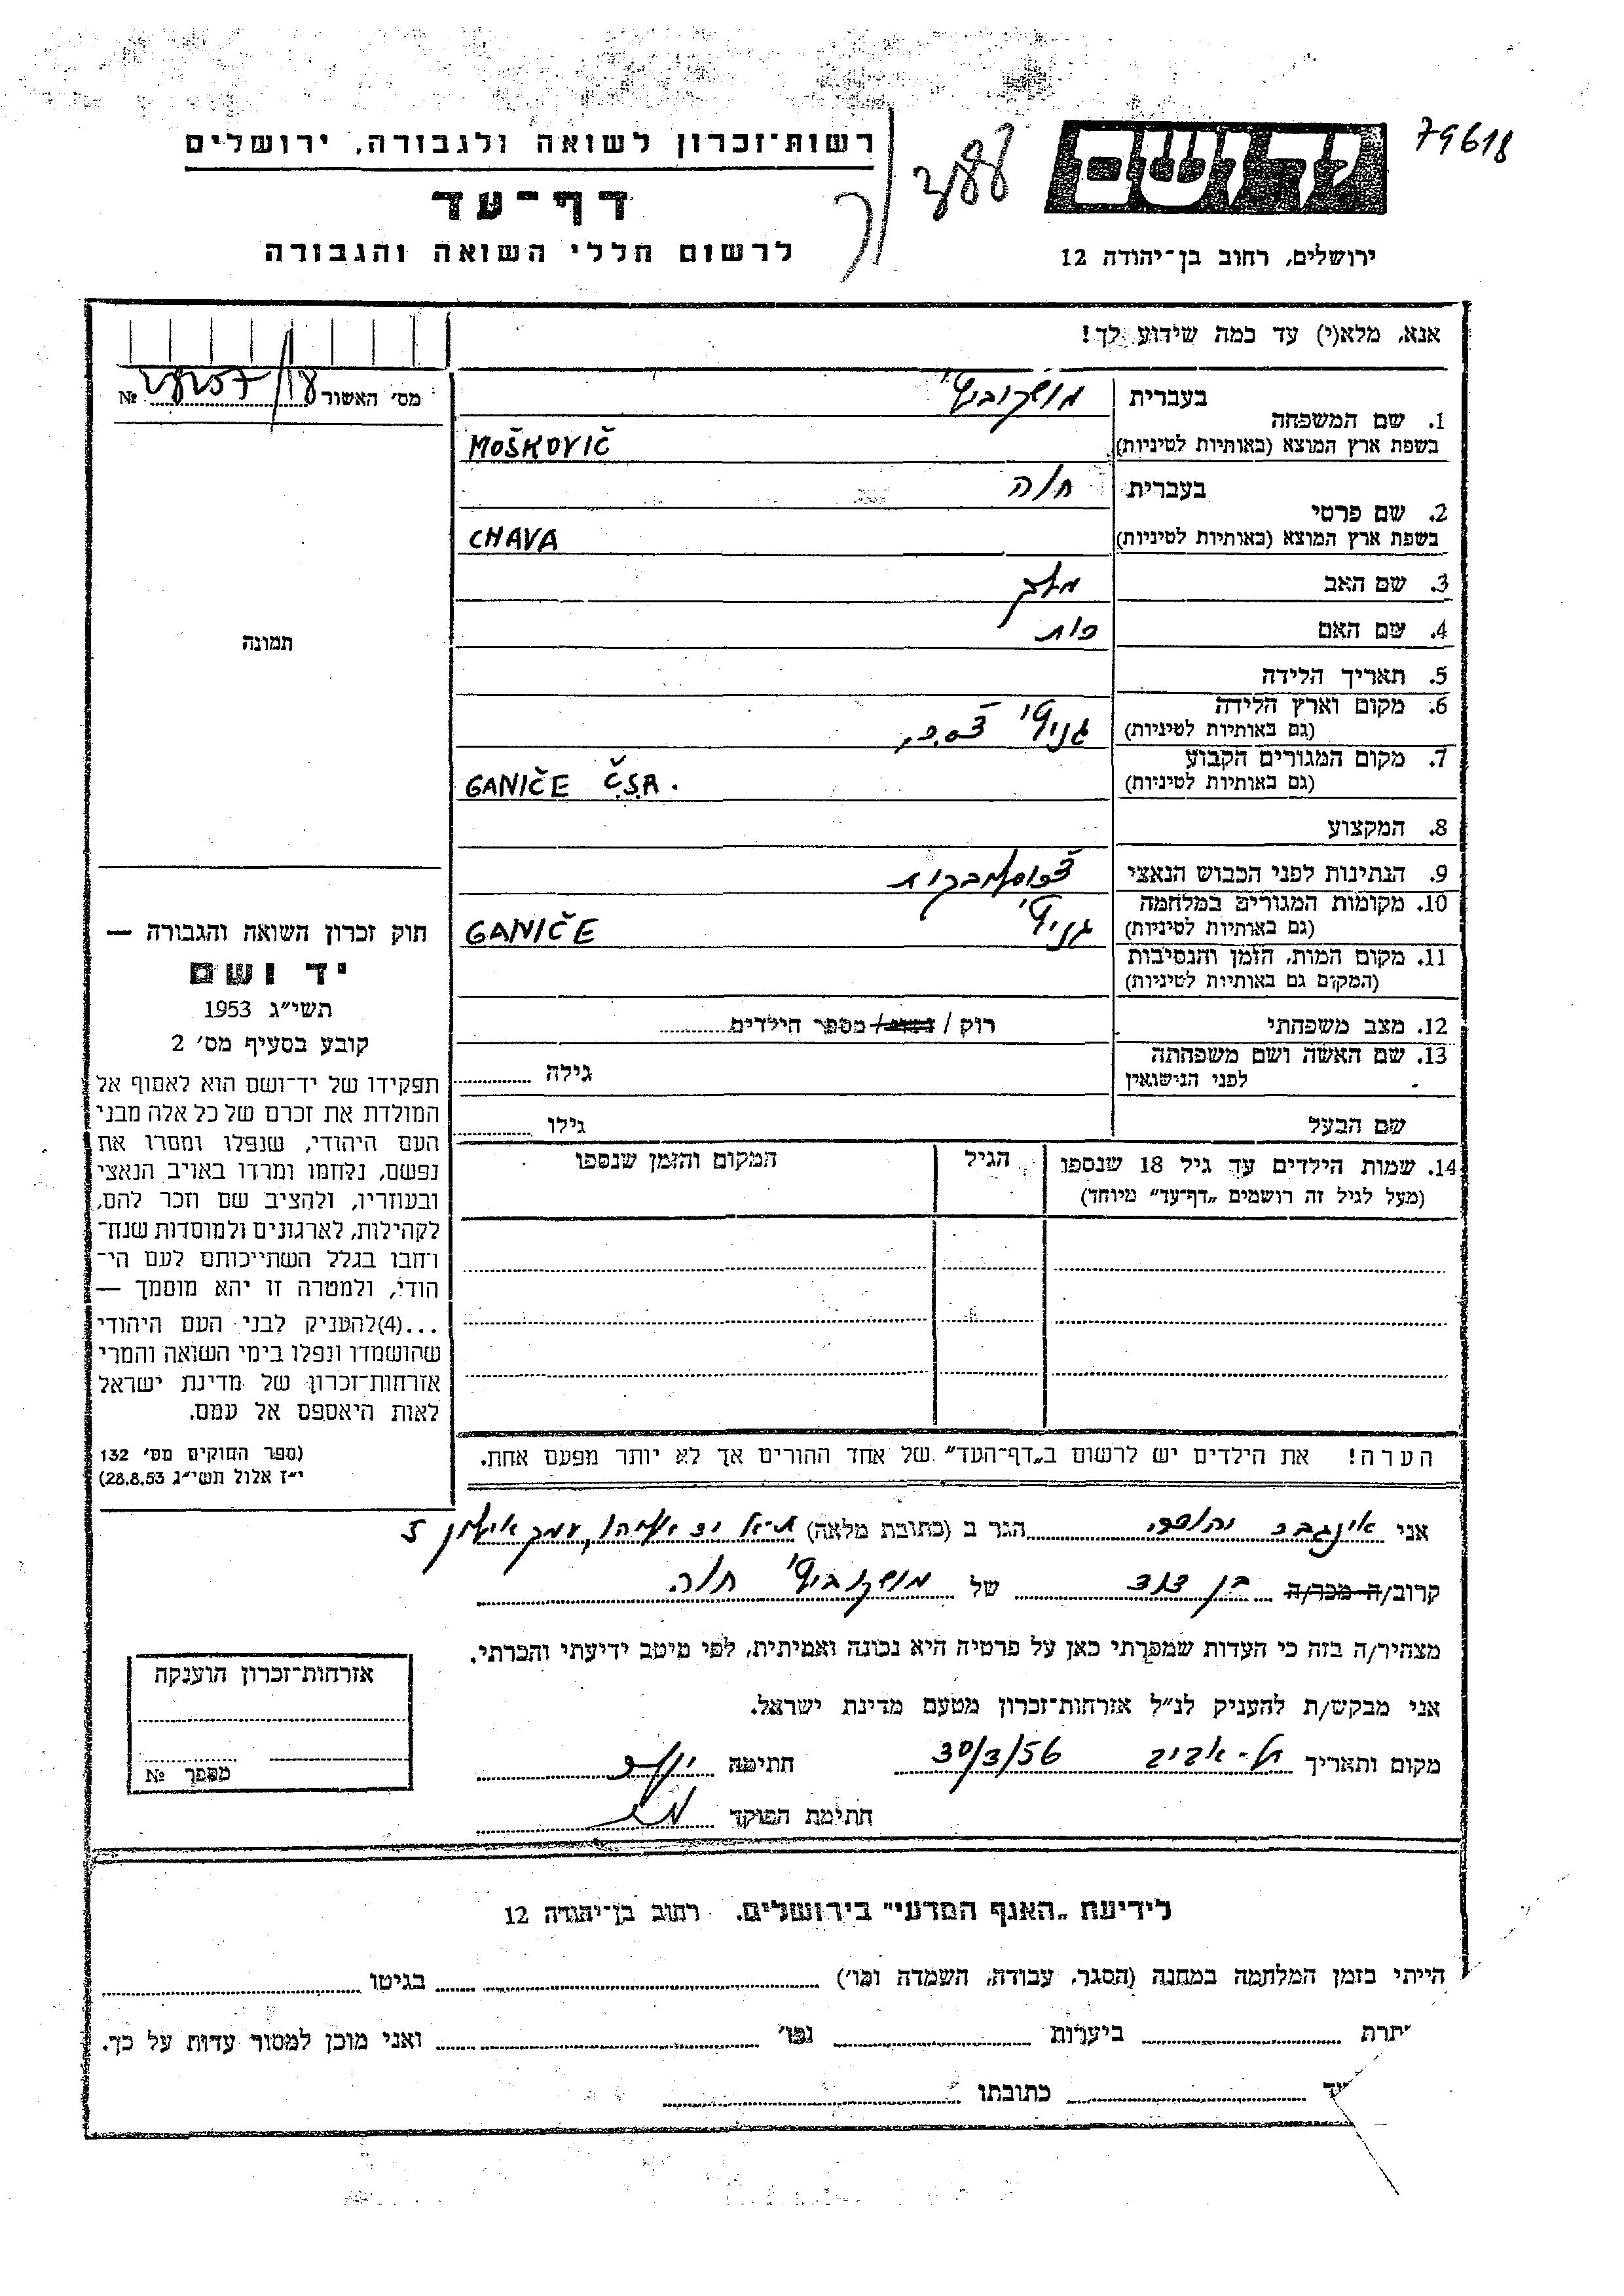 79618
ידושם
ירושלים, רחוב בן־יהודה 12
רשות־זכרון לשואה ולגבורה, ירושלים
דף־עד
לרשום חללי השואה והגבורה
אנא, מלא(י) עד כמה שידוע לך!
מס׳ האשור №
1. שם המשפחה
בעברית מושקוביץ'
בשפת ארץ המוצא (באותיות לטיניות) MOŠKOVIČ
2. שם פרטי
בעברית חוה
בשפת ארץ המוצא (באותיות לטיניות) CHAVA
3. שם האב
4. שם האם
5. תאריך הלידה
6. מקום וארץ הלידה
(גם באותיות לטיניות) גניץ' צ.ס.ר.
7. מקום המגורים הקבוע
(גם באותיות לטיניות) GANIČE Č.S.R.
8. המקצוע
9. הנתינות לפני הכבוש הנאצי
10. מקומות המגורים במלחמה
(גם באותיות לטיניות) גניץ' GANIČE
11. מקום המות, הזמן והנסיבות
(המקום גם באותיות לטיניות)
12. מצב משפחתי רוק / נשוי / מספר הילדים
13. שם האשה ושם משפחתה
לפני הנישואין גילה
שם הבעל גילו
14. שמות הילדים עד גיל 18 שנספו הגיל המקום והזמן שנספו
(מעל לגיל זה רושמים „דף־עד” מיוחד)
הערה! את הילדים יש לרשום ב„דף־העד” של אחד ההורים אך לא יותר מפעם אחת.
תמונה
חוק זכרון השואה והגבורה —
יד ושם
תשי״ג 1953
קובע בסעיף מס׳ 2
תפקידו של יד־ושם הוא לאסוף אל
המולדת את זכרם של כל אלה מבני
העם היהודי, שנפלו ומסרו את
נפשם, נלחמו ומרדו באויב הנאצי
ובעוזריו, ולהציב שם וזכר להם,
לקהילות, לארגונים ולמוסדות שנח־
רחבו בגלל השתייכותם לעם הי־
הודי, ולמטרה זו יהא מוסמך —
...(4)להעניק לבני העם היהודי
שהושמדו ונפלו בימי השואה והמרי
אזרחות־זכרון של מדינת ישראל
לאות היאספם אל עמם.
(ספר החוקים מס׳ 132
י״ז אלול תשי״ג 28.8.53)
אני הגר ב (כתובת מלאה)
קרוב/ה מכר/ה בן דוד של מושקוביץ' חוה
מצהיר/ה בזה כי העדות שמסרתי כאן על פרטיה היא נכונה ואמיתית, לפי מיטב ידיעתי והכרתי.
אני מבקש/ת להעניק לנ״ל אזרחות־זכרון מטעם מדינת ישראל.
מקום ותאריך תל-אביב 30/3/56 חתימה
חתימת הפוקד
אזרחות־זכרון הוענקה
מספר №
לידיעת „האגף המדעי” בירושלים. רחוב בן־יהודה 12
הייתי בזמן המלחמה במחנה (הסגר, עבודה, השמדה וכו׳) בגיטו
תרת ביערות וכו׳ ואני מוכן למסור עדות על כך.
כתובתו